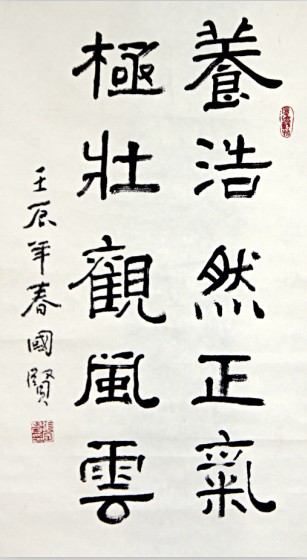 養浩然正氣
極壯觀風雲
壬辰年春國賢